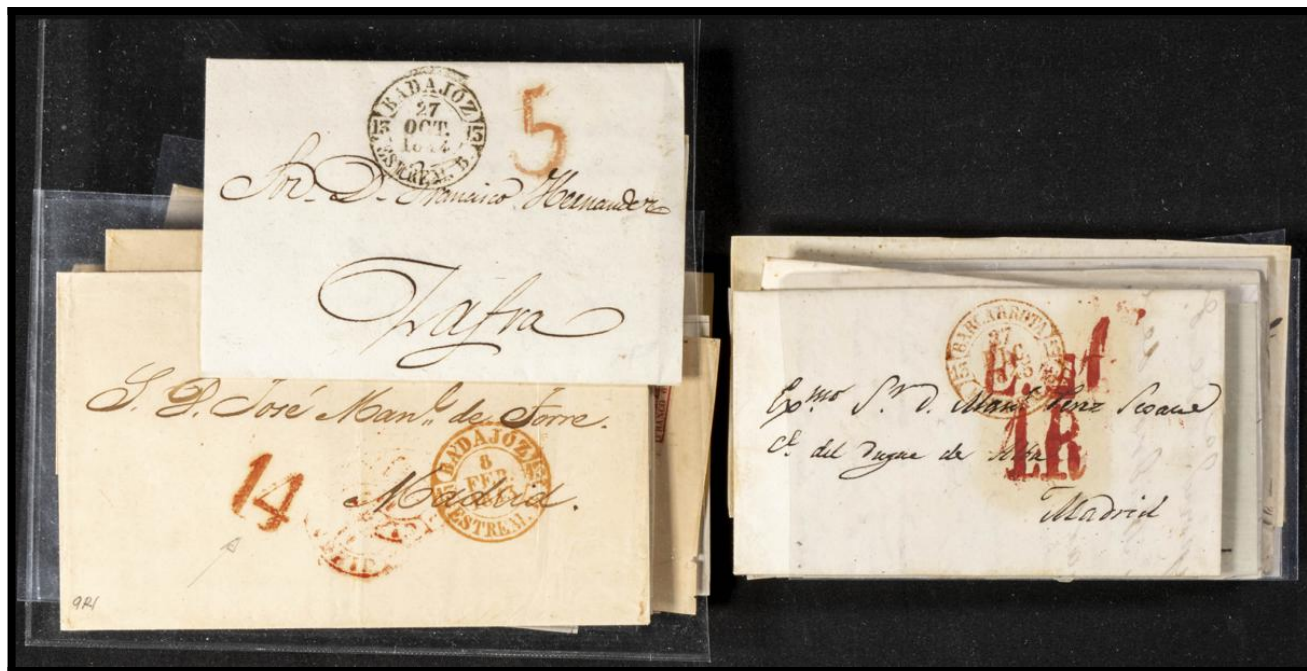 BADAJÓZ
27
OCT.
13 13
ESTREM. B.
5
Sor. D. Francisco Hernandez
Zafra
S. D. José Man.l de Torre.
BADAJÓZ
8
FEB
ESTREM.
14
Madrid.
9R1
BARCARROTA
27
1R
Exmo Sr. D. Man.l Perez Seoane
Cl. del Duque de Alba
Madrid